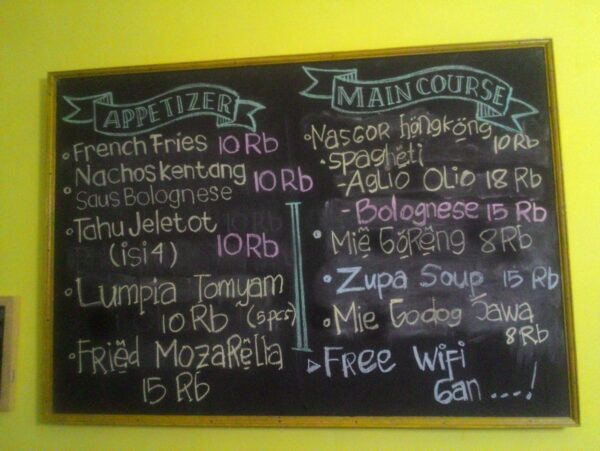 APPETIZER
French Fries 10 Rb
Nachos kentang
Saus Bolognese 10 Rb
Tahu Jeletot
(isi 4) 10 Rb
Lumpia Tomyam
10 Rb (5 pcs)
Fried Mozarella
15 Rb
MAIN COURSE
Nasgor hongkong
10 Rb
Spagheti
- Aglio Olio 18 Rb
- Bolognese 15 Rb
Mie Goreng 8 Rb
Zupa Soup 15 Rb
Mie Godog Jawa
8 Rb
Free Wifi
Gan ....!